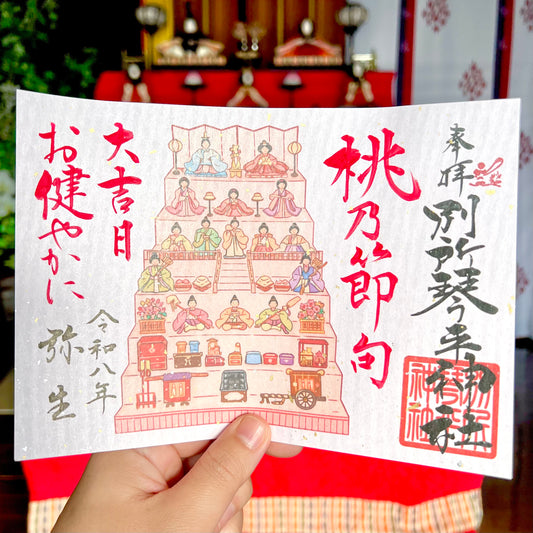 奉拝
別所琴平神社
桃乃節句
大吉日
お健やかに
令和八年
弥生